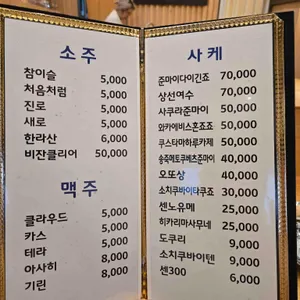 소주
참이슬 5,000
처음처럼 5,000
진로 5,000
새로 5,000
한라산 6,000
비잔클리어 50,000
맥주
클라우드 5,000
카스 5,000
테라 5,000
아사히 8,000
기린 8,000
사케
준마이다이긴죠 70,000
상선여수 70,000
사쿠라준마이 50,000
와카에비스혼죠죠 50,000
쿠스타마하루카제 50,000
송죽매토쿠베츠준마이 40,000
오또상 40,000
소치쿠바이타쿠죠 30,000
센노유메 25,000
히카리마사무네 25,000
도쿠리 9,000
소치쿠바이텐 9,000
센300 6,000